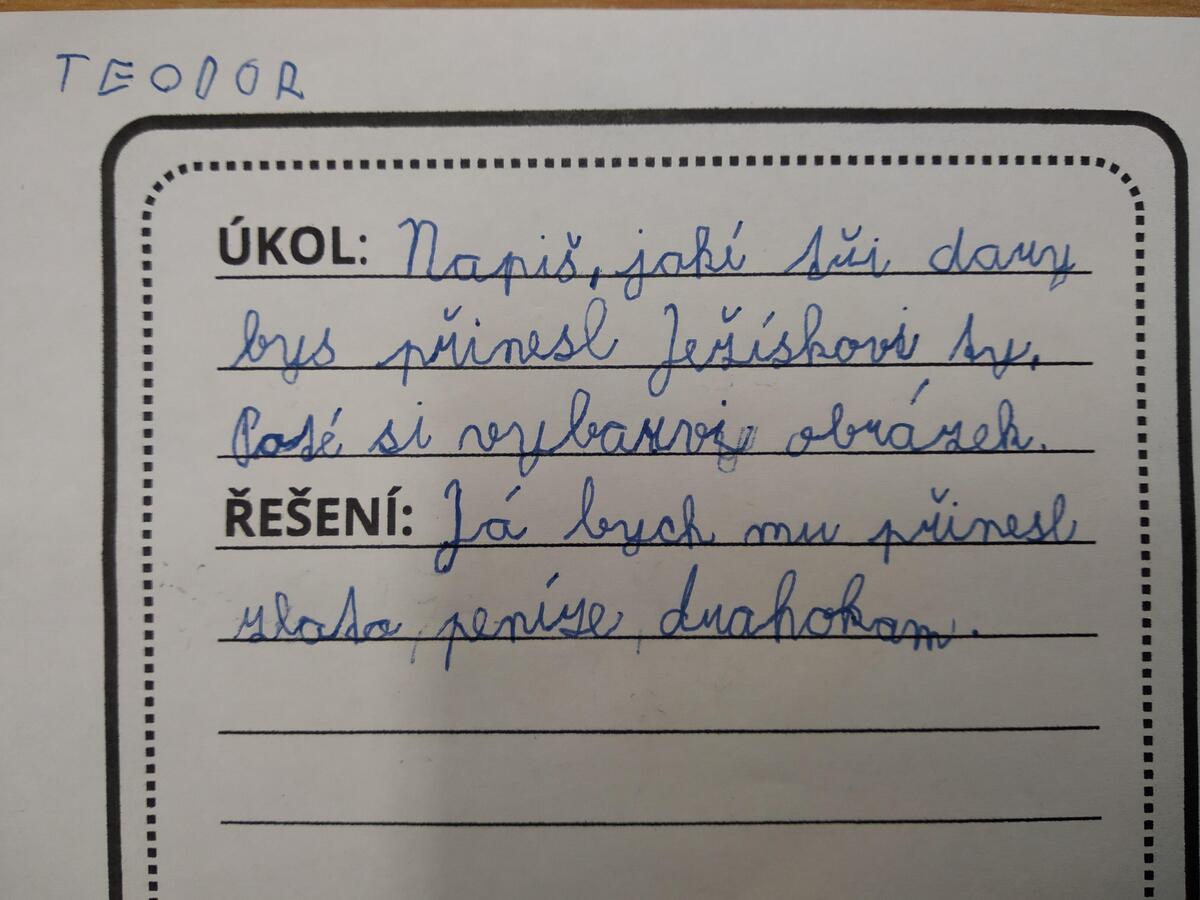 TEODOR
ÚKOL: Napiš, jakí tři dary
bys přinesl Ježískovi ty.
Poté si vybarvi obrázek.
ŘEŠENÍ: Já bych mu přinesl
zlato, peníze, drahokam.